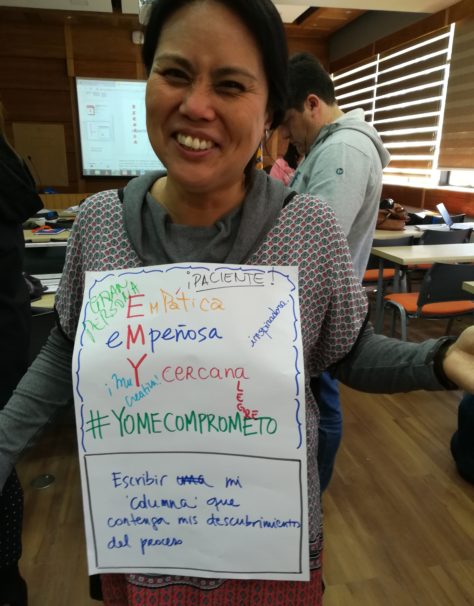 ¡PACIENTE!
GRAN PERSONA
EMPática
emPeñosa
inspiradora
¡Muy creativa!
CERCANA
ALEGRE
EMY
#YOMECOMPROMETO
Escribir una mi
'columna' que
contenga mis descubrimientos
del proceso